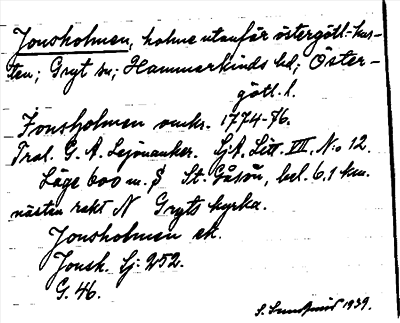 Jonsholmen, holme utanför östergötl:kus-
ten; Gryt sn; Hammarkinds hd; Öster-
götl. l.
Jonsholmen omkr. 1774-76.
Tral. G. A. Lejonanker. LjA. Litt. VIII, N:o 12.
Läge 600 m. S St. Gåsön, bel. 6.1 km.
nästan rakt N Gryts kyrka.
Jonsholmen ek.
Jonsh. Lj: 252.
G. 46.
S. 1939.